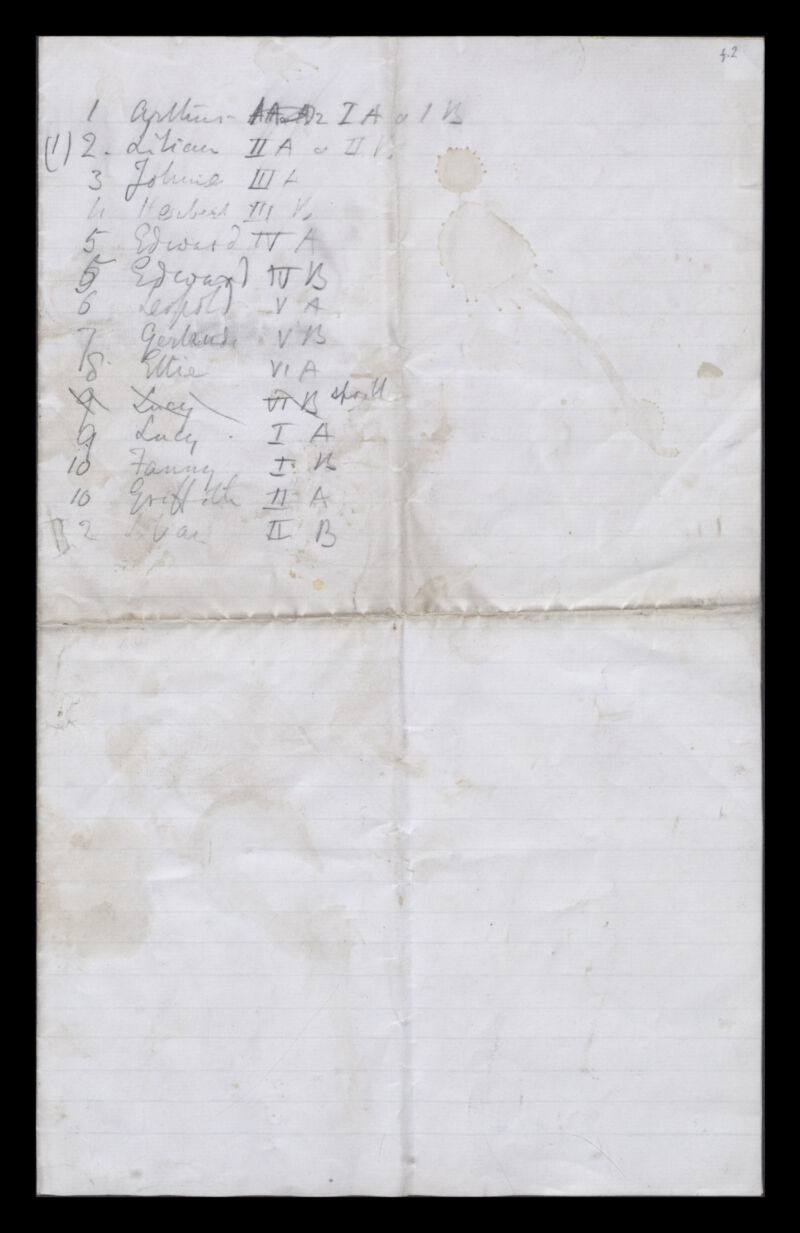 f.2
1 Arthur I A a I B
(1) 2. Lilian II A a II B
3 Johnie III A
4 Herbert III B
5 Edward IV A
5 Edward IV B
6 Leopold V A
7 Gertrude V B
8 Ettie VI A
9 Lucy VI B spoilt
9 Lucy I A
10 Fanny I B
10 Griffith II A
2 II B